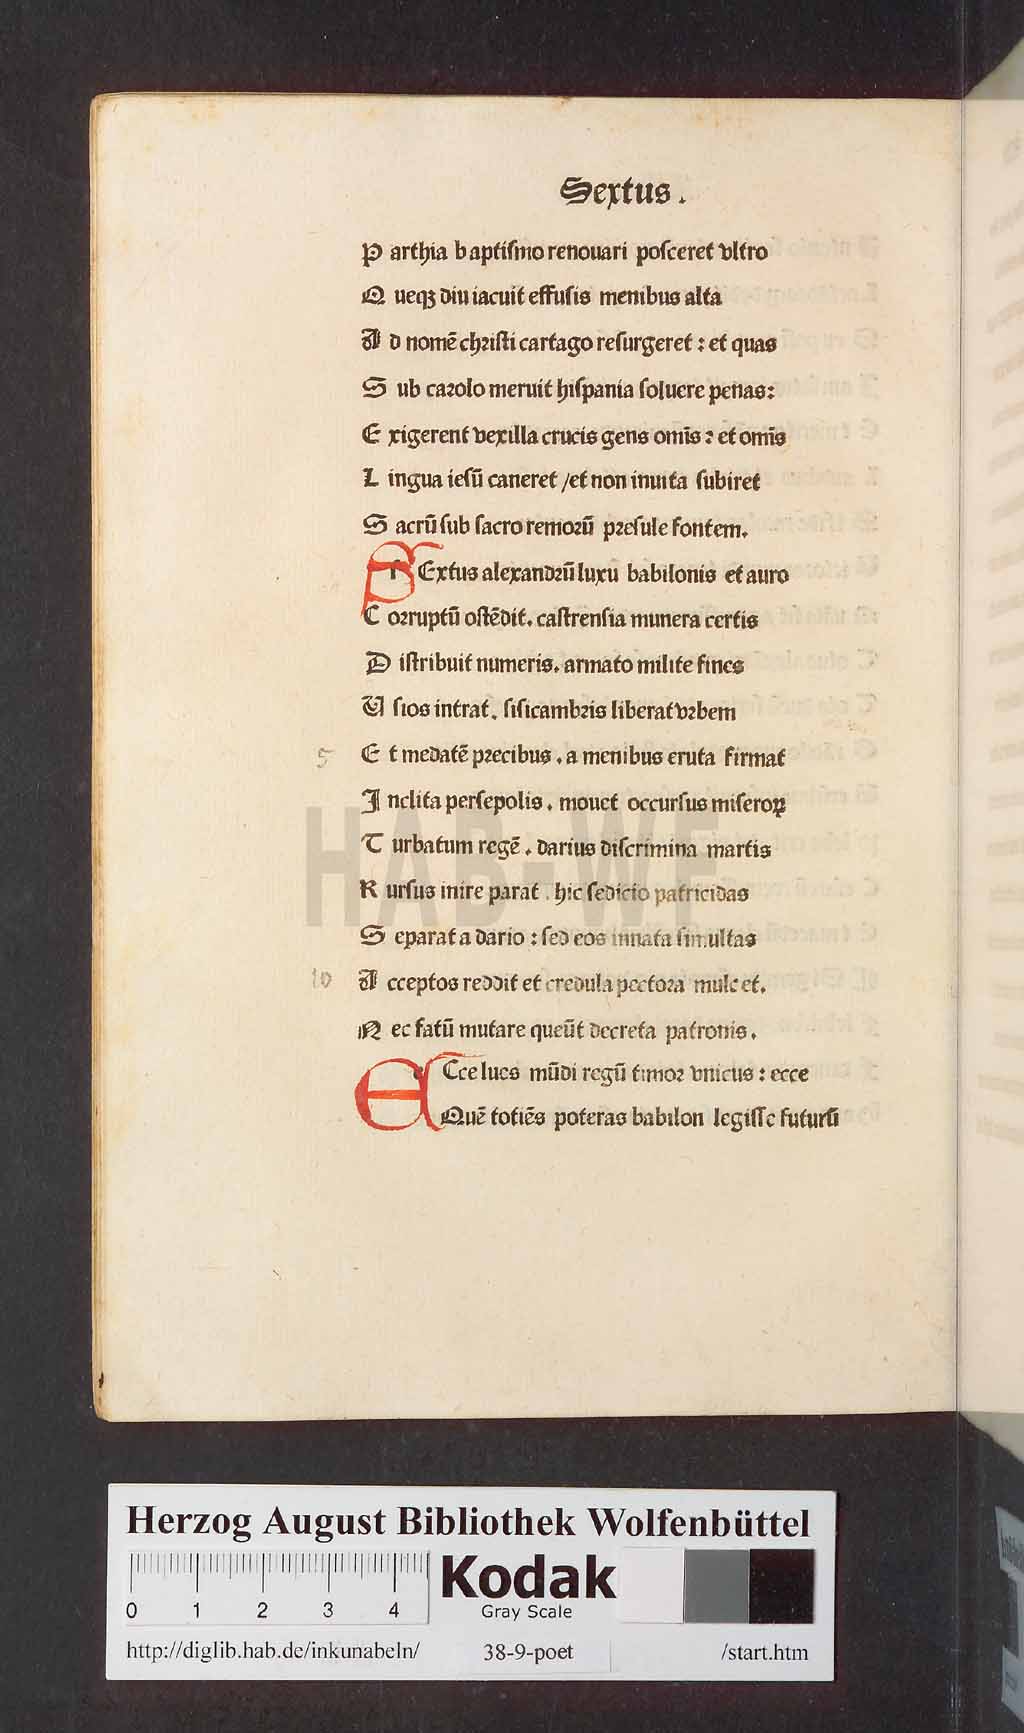 Sextus.
P arthia baptiſmo renouari poſceret vltro
Q ueqꝫ diu iacuit effuſis menibus alta
A d nomē chꝛiſti cartago reſurgeret : et quas
S ub caꝛolo meruit hiſpania ſoluere penas:
E xigerent vexilla crucis gens omīs : et omīs
L ingua ieſū caneret /et non inuita ſubiret
S acrū ſub ſacro remoꝛū pꝛeſule fontem.
S Extus alexandꝛū luxu babilonis et auro
C oꝛruptū oſtēdit. caſtrenſia munera certis
D iſtribuit numeris. armato milite fines
U ſios intrat. ſiſicambꝛis liberat vꝛbem
5 E t medatē pꝛecibus . a menibus eruta firmat
I nclita perſepolis . mouet occurſus miſeroꝝ
T urbatum regē . darius diſcrimina martis
R urſus inire parat . hic ſedicio patricidas
S eparat a dario : ſed eos innata ſimultas
10 A cceptos reddit et credula pectoꝛa mulcet.
N ec fatū mutare queūt decreta patronis.
E Cce lues mūdi regū timoꝛ vnicus : ecce
Quē totiēs poteras babilon legiſſe futurū
HAB-WF
Herzog August Bibliothek Wolfenbüttel
0 1 2 3 4
Kodak
Gray Scale
http://diglib.hab.de/inkunabeln/ 38-9-poet /start.htm